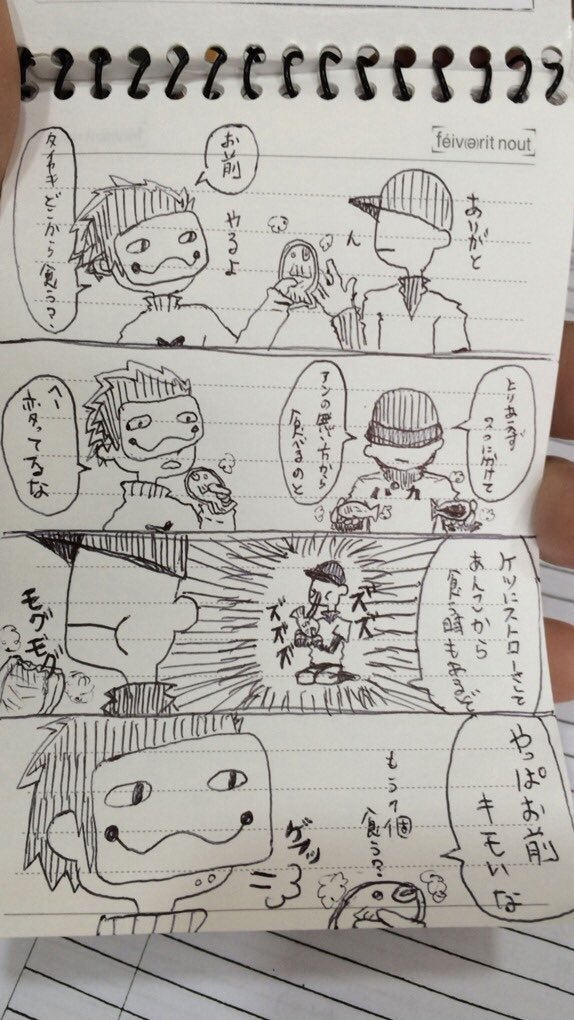 féiv(ə)rit nout
ありがと
ん
やるよ
お前
タイヤキどこから食う?
とりあえず
2つに分けて
アンの悪い方から
食べるのと
へー
ホタってるな
ケツにストローさして
あんこから
食う時もあるぞ
ズズ
ズズズ
モグモグ
やっぱお前
キモいな
もう1個
食う?
ゲフッ